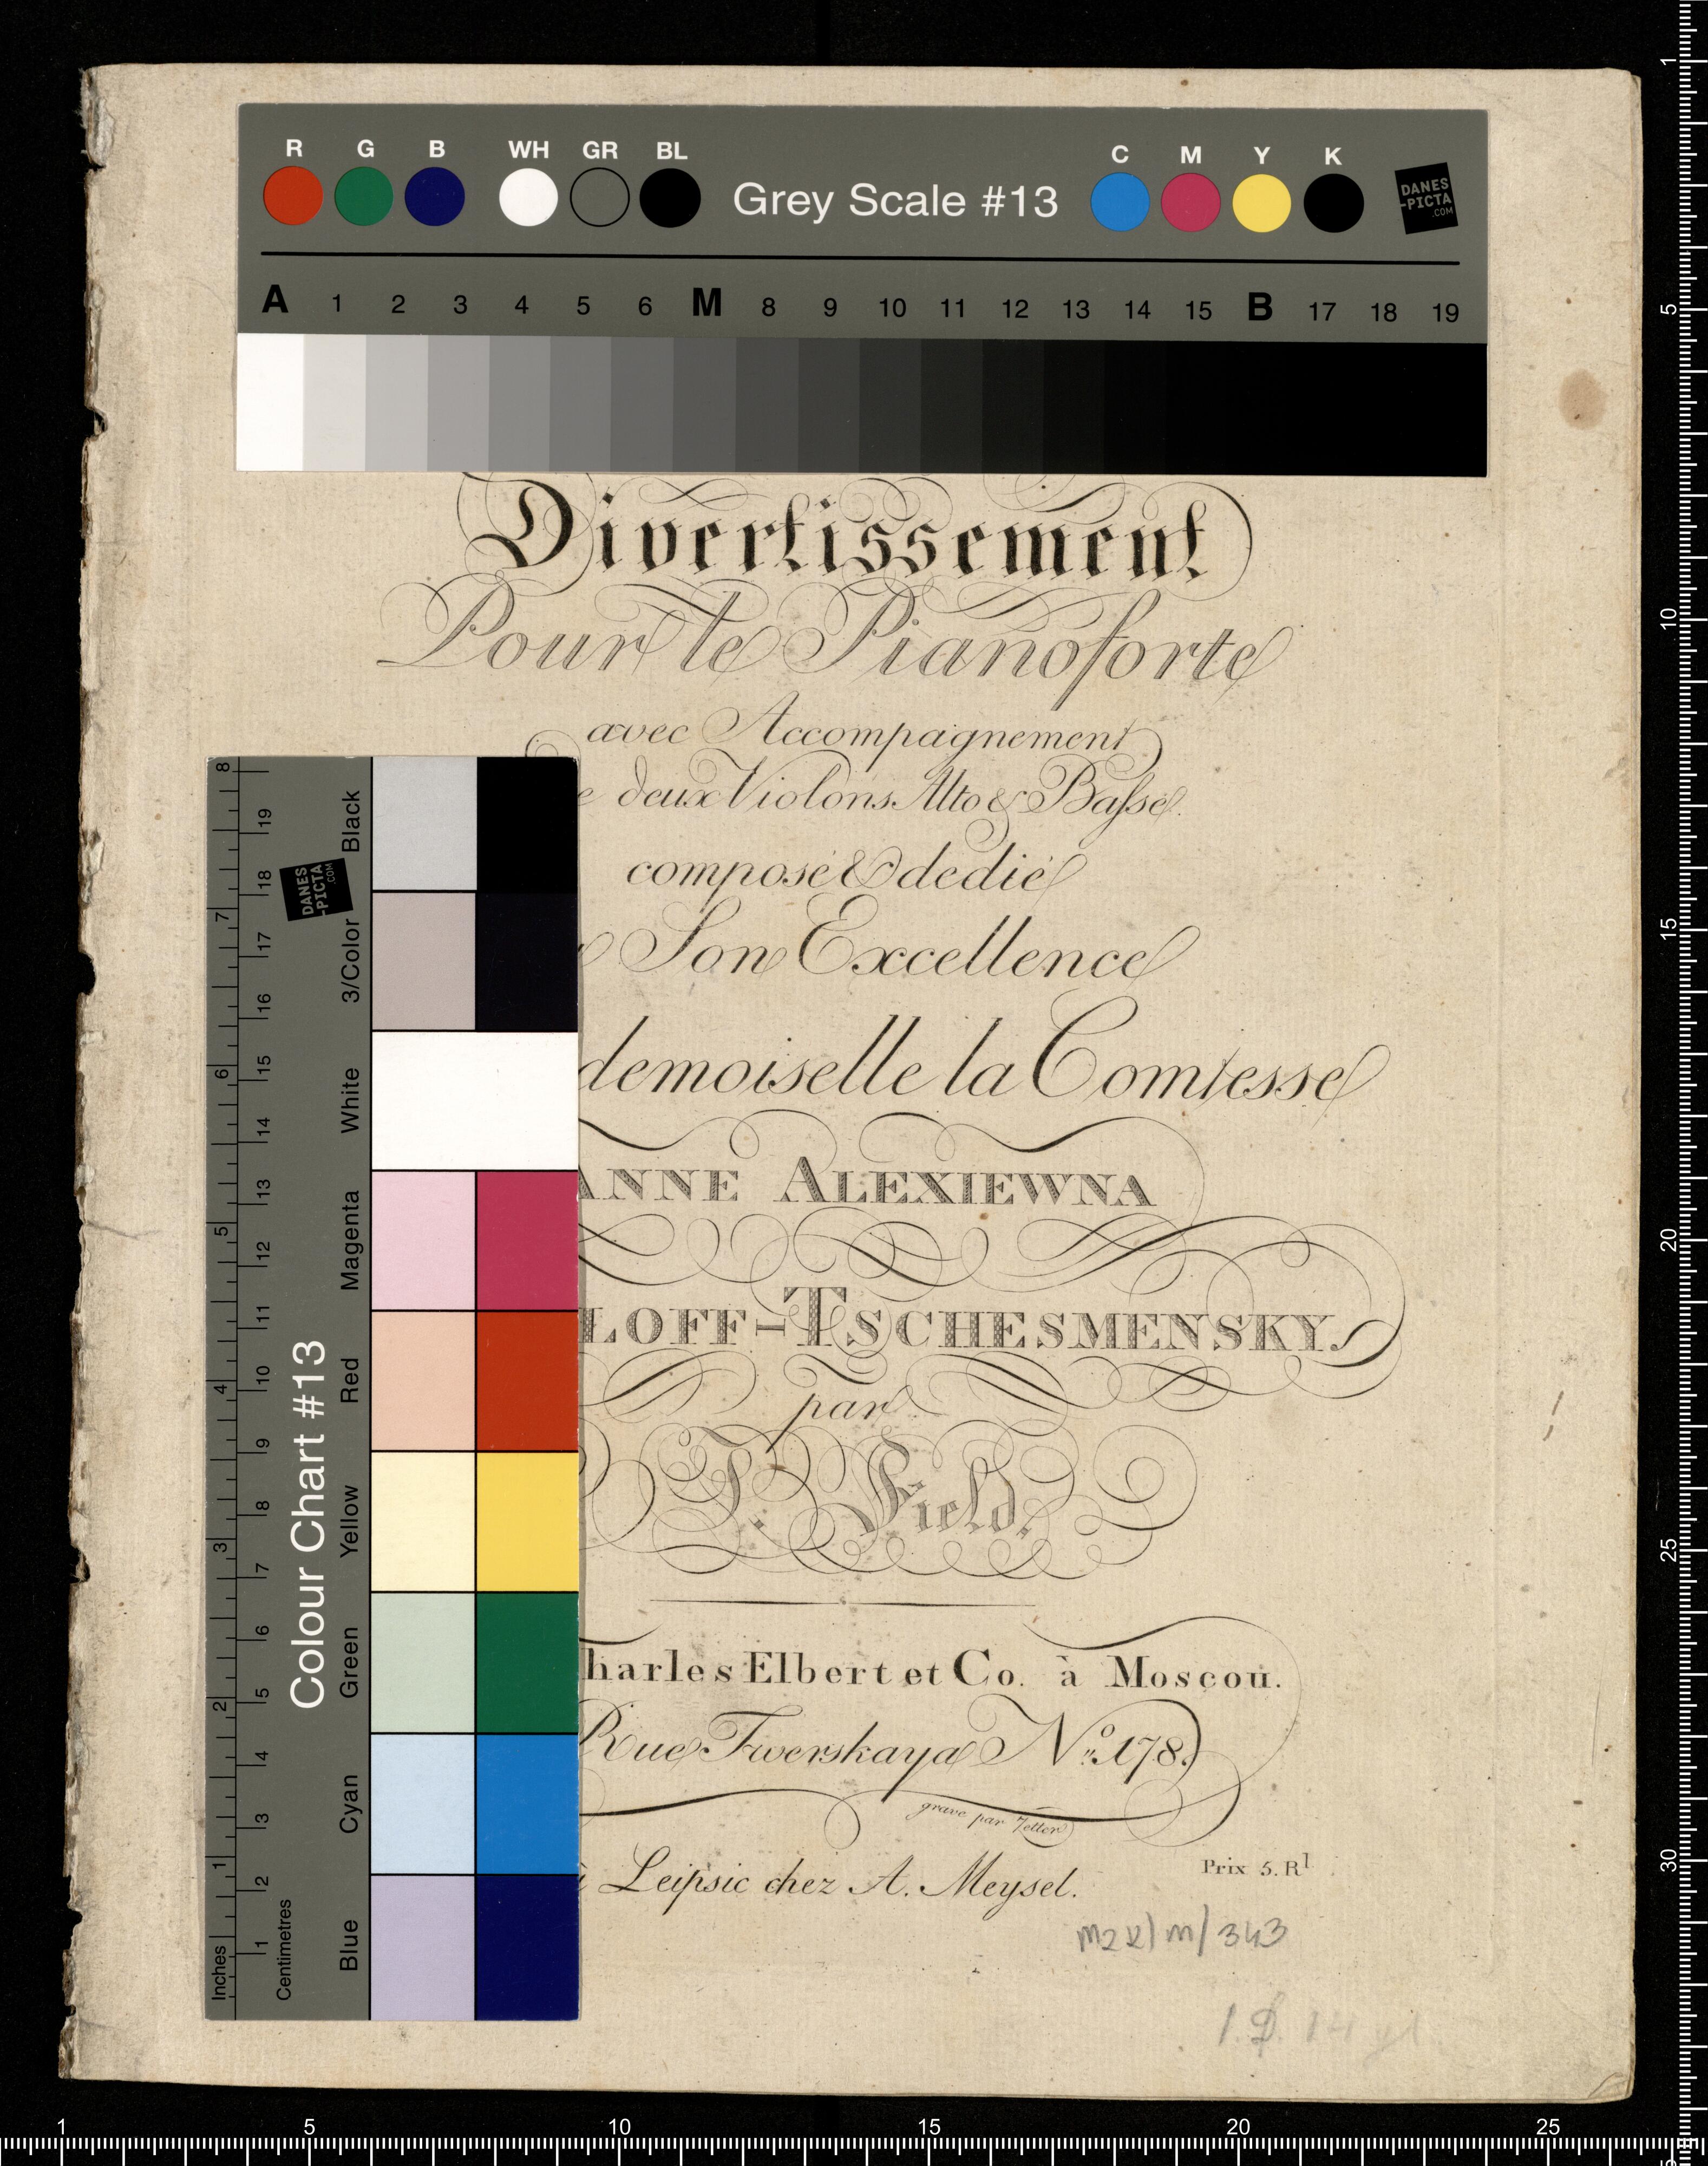 R G B WH GR BL Grey Scale #13 C M Y K
DANES
-PICTA
.COM
A 1 2 3 4 5 6 M 8 9 10 11 12 13 14 15 B 17 18 19
Divertissement
Pour le Pianoforte
avec Accompagnement
e deux Violons Alto & Basse.
composé & dedié
Son Excellence
demoiselle la Comtesse
ANNE ALEXIEWNA
LOFF-TSCHESMENSKY.
par
J. Field.
harles Elbert et Co. à Moscou.
Rue Twerskaya No. 178.
gravé par Zetter
à Leipsic chez A. Meysel.
Prix 5. Rl
m2k)m/343
Colour Chart #13
DANES
-PICTA
.COM
Blue Cyan Green Yellow Red Magenta White 3/Color Black
Inches 1 2 3 4 5 6 7 8
Centimetres 1 2 3 4 5 6 7 8 9 10 11 12 13 14 15 16 17 18 19
1 5 10 15 20 25 30
1 5 10 15 20 25